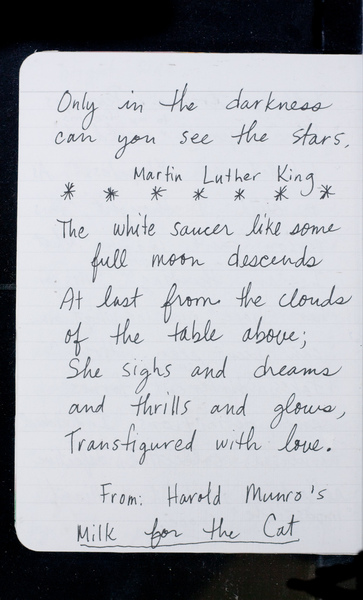 Only in the darkness
can you see the stars.
Martin Luther King
* * * * * * *
The white saucer like some
full moon descends
At last from the clouds
of the table above;
She sighs and dreams
and thrills and glows,
Transfigured with love.
From: Harold Munro's
Milk for the Cat